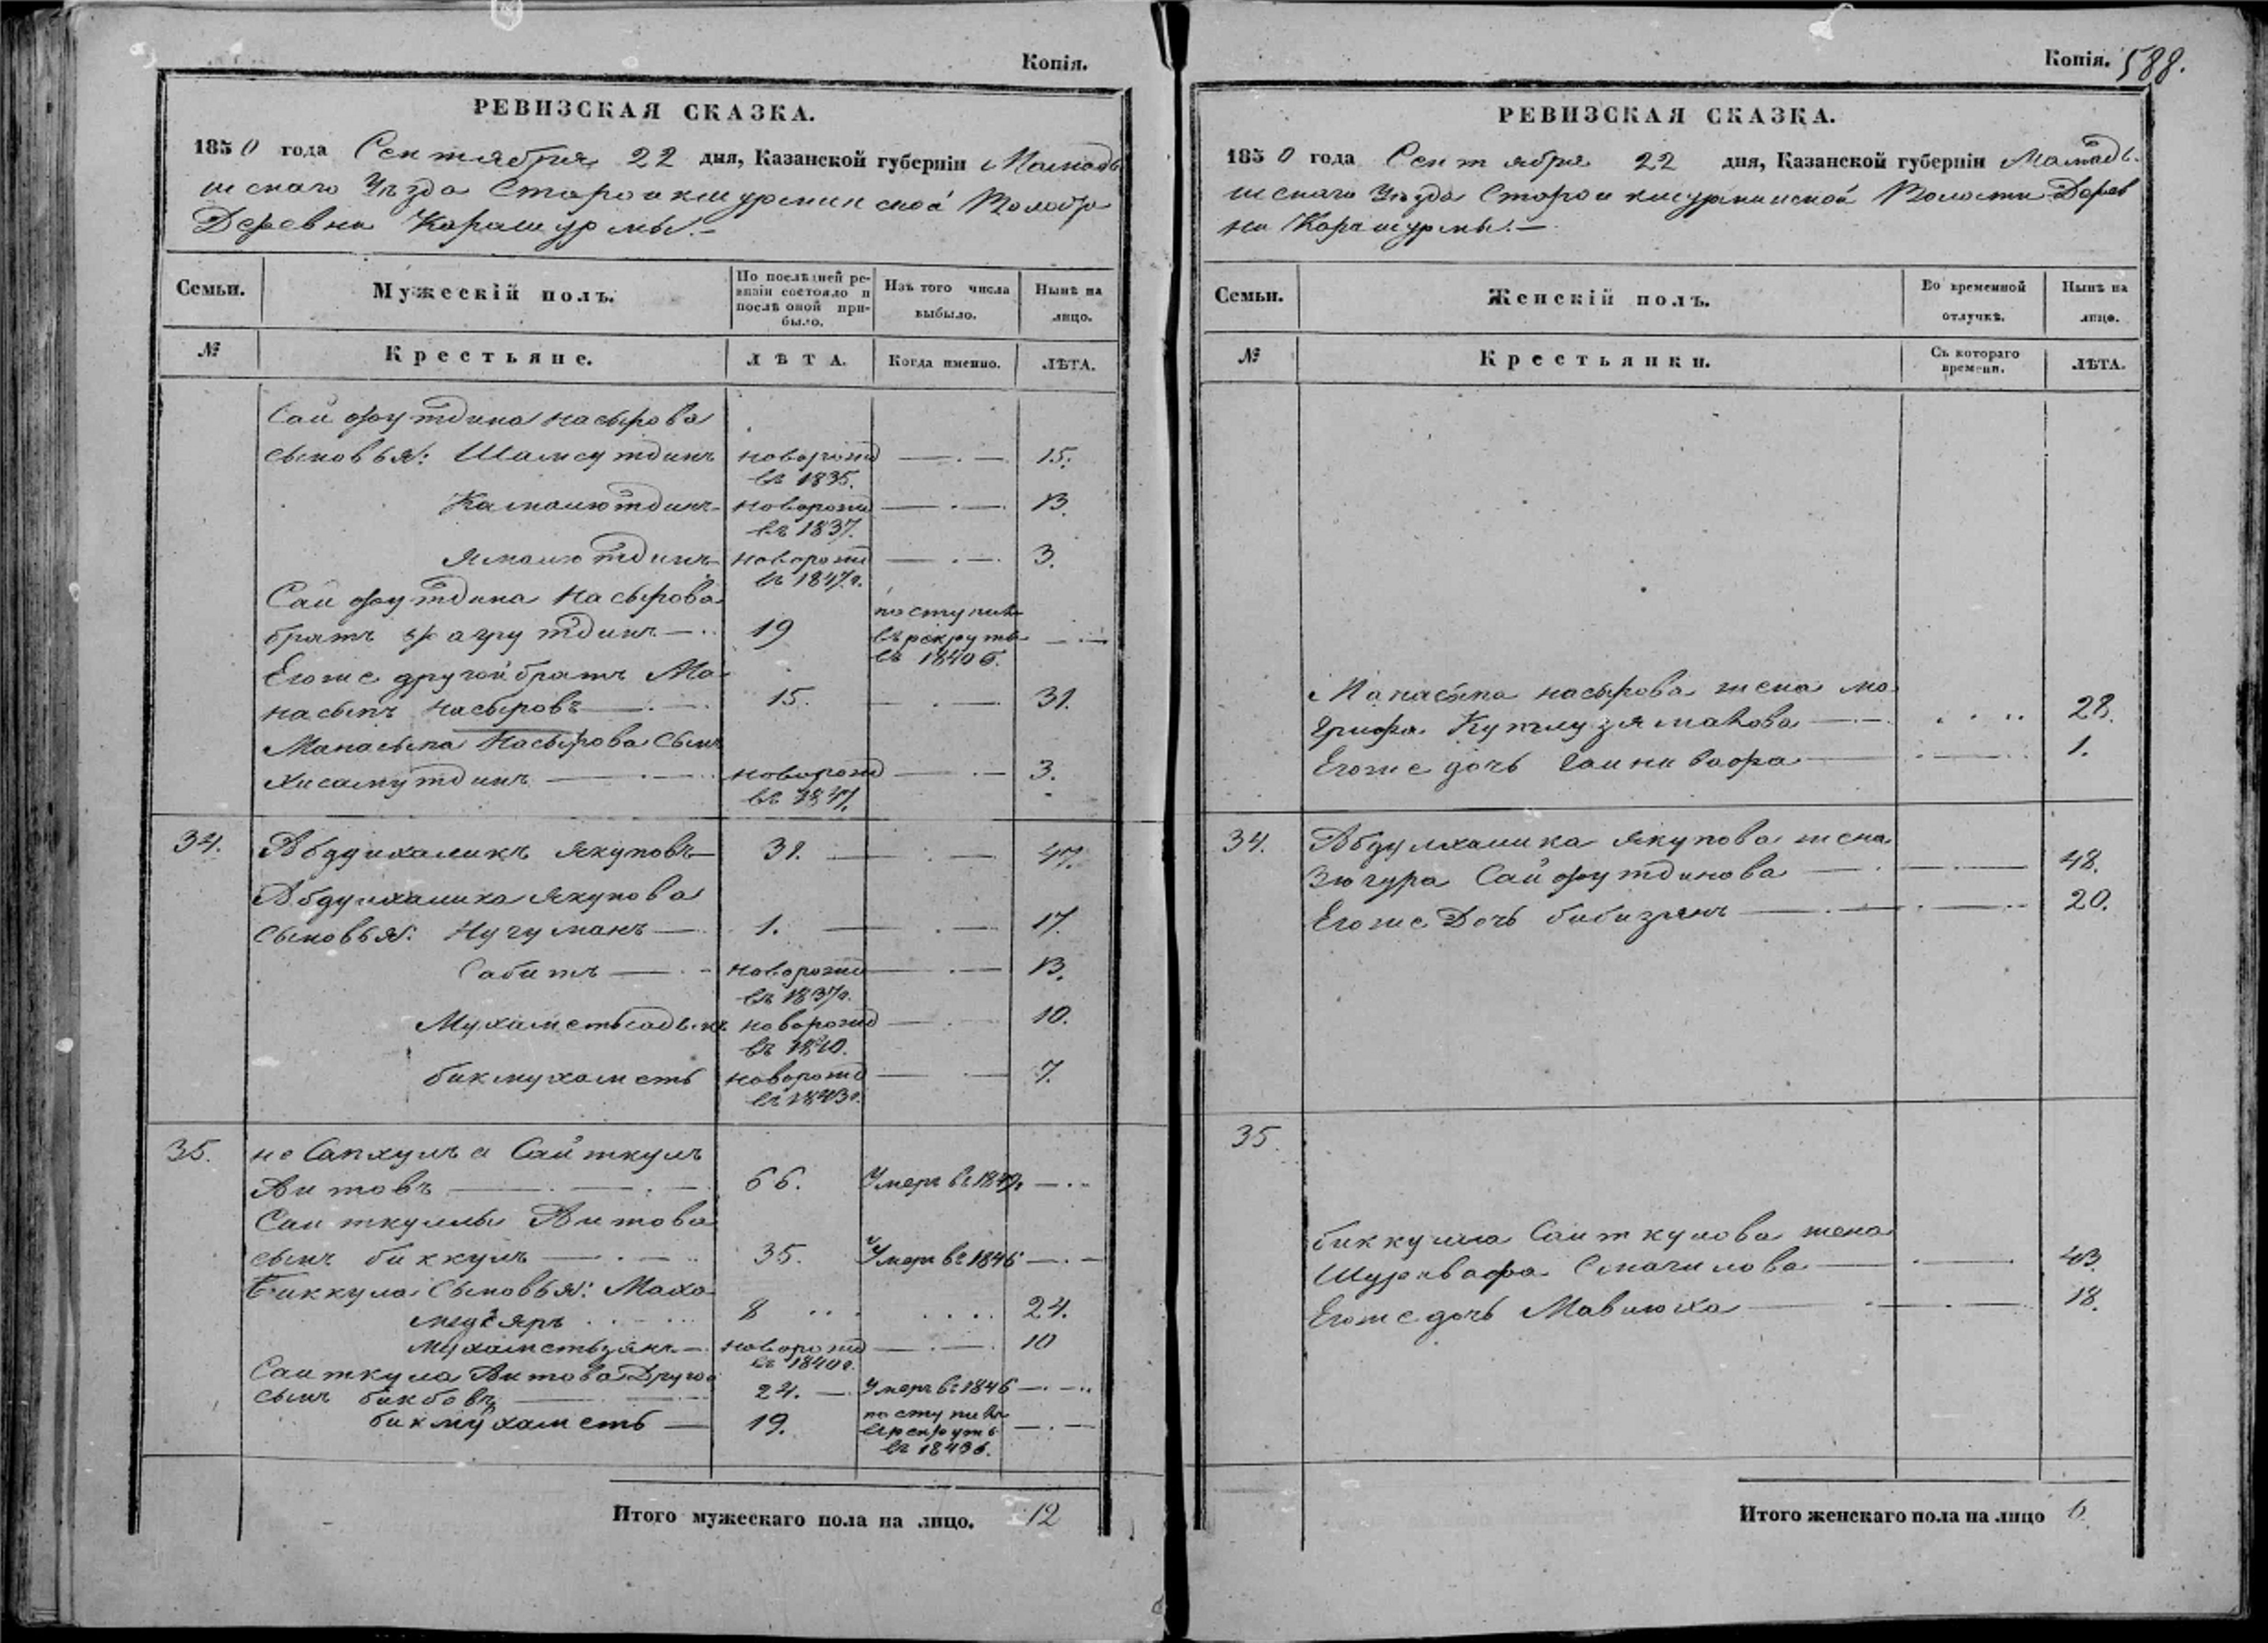 Копія.
РЕВИЗСКАЯ СКАЗКА.
1850 года Сентября 22 дня, Казанской губерніи Мамадыш
скаго Уѣзда Староикшурминской Волости
Деревни Карашурмы.—
Семьи. Мужескій полъ. По послѣдней ревизіи состояло и послѣ оной прибыло. Изъ того числа выбыло. Нынѣ на лицо.
№ Крестьяне. ЛѢТА. Когда именно. ЛѢТА.
Сайфутдина Насырова
сыновья: Шамсутдинъ новорожд 15.
въ 1835.
Камалютдинъ новорожд 13.
въ 1837.
Ямалютдинъ новорожд 3.
въ 1847 г.
Сайфутдина Насырова поступилъ
братъ Фахрутдинъ 19 въ рекруты
въ 1840 г.
Егоже другой братъ Ма-
насыпъ Насыровъ 15. 31.
Манасыпа Насырова сынъ
Хисамутдинъ новорожд 3.
въ 1847.
34. Абдулхаликъ Якуповъ 31. 47.
Абдулхалика Якупова
сыновья: Нугуманъ 1. 17.
Сабитъ новорожд 13.
въ 1837 г.
Мухаметьсадыкъ новорожд 10.
въ 1840.
бикмухаметь новорожд 7.
въ 1843 г.
35. не Сапкулъ а Сайткулъ
Аитовъ 66. Умеръ въ 1847.
Саиткулы Аитова
сынъ биккулъ 35. Умеръ въ 1846
Биккула Сыновья: Маха-
медьяръ 8 24.
Мухаметьзянъ новорожд 10
въ 1840 г.
Саиткула Аитова Другой
сынъ бикбовъ 24. Умеръ въ 1846
бикмухаметь 19. поступилъ
въ рекруты
въ 1843 г.
Итого мужескаго пола на лицо. 12
Копія. 588.
РЕВИЗСКАЯ СКАЗКА.
1850 года Сентября 22 дня, Казанской губерніи Мамадыш
скаго Уѣзда Староикшурминской Волости Дерев
ни Карашурмы.—
Семьи. Женскій полъ. Во временной отлучкѣ. Нынѣ на лицо.
№ Крестьянки. Съ котораго времени. ЛѢТА.
Манасыпа Насырова жена Ма
грифа Кутлузяманова 28.
Егоже дочь 1.
34. Абдулхалика Якупова жена
Зюгура Сайфутдинова 48.
Егоже Дочь бибизянъ 20.
35.
биккула Саиткулова жена
Смагилова 43.
Егоже дочь Мавлюха 18.
Итого женскаго пола на лицо 6.